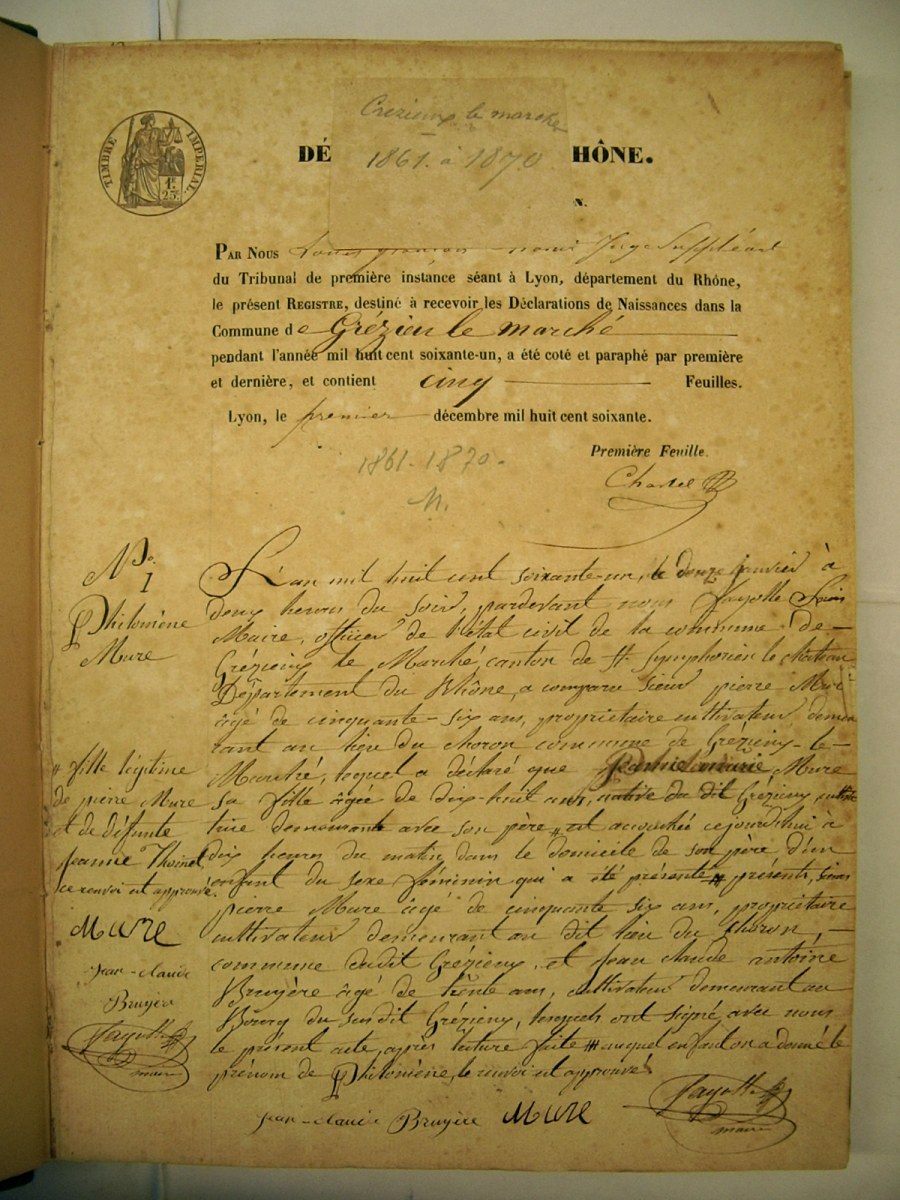 Grézieux le marché
1861. à 1870
DÉ HÔNE.
TIMBRE IMPERIAL
1F 25C
N.
PAR NOUS Juge Suppléant
du Tribunal de première instance séant à Lyon, département du Rhône,
le présent REGISTRE, destiné à recevoir les Déclarations de Naissances dans la
Commune de Grézieu le marché
pendant l'année mil huit cent soixante-un, a été coté et paraphé par première
et dernière, et contient cinq Feuilles.
Lyon, le premier décembre mil huit cent soixante.
Première Feuille.
1861-1870.
N.
No.
1
Philomène
Mure
L'an mil huit cent soixante-un, le douze janvier à
deux heures du soir, pardevant nous Fayolle
Maire, officier de l'état civil de la commune de
Grézieux le Marché, canton de St. Symphorien le château
Département du Rhône, a comparu sieur pierre Mure
âgé de cinquante-six ans, propriétaire cultivateur demeu
rant au lieu du choron commune de Grézieux-le-
Marché, lequel a déclaré que marie Mure
sa fille âgée de dix-huit ans, native du dit Grézieux, cultiva
trice demeurante avec son père # est accouchée cejourd'hui à
dix heures du matin dans le domicile de son père d'un
enfant du sexe féminin qui a été présenté # présents, sieurs
pierre Mure âgé de cinquante six ans, propriétaire
cultivateur demeurant au dit lieu du Choron,
commune dudit Grézieux, et Jean claude antoine
Bruyère âgé de trente ans, cultivateur demeurant au
Bourg du susdit Grézieux, lesquels ont signé avec nous
le présent acte, après lecture faite # auquel enfant on a donné le
prénom de Philomène, le renvoi est approuvé.
# fille légitime
de pierre Mure
et de défunte
jeanne Thoinet
ce renvoi est approuvé
Mure
jean-claude
Bruyère
Fayolle
maire
jean-claude Bruyère Mure
Fayolle
maire